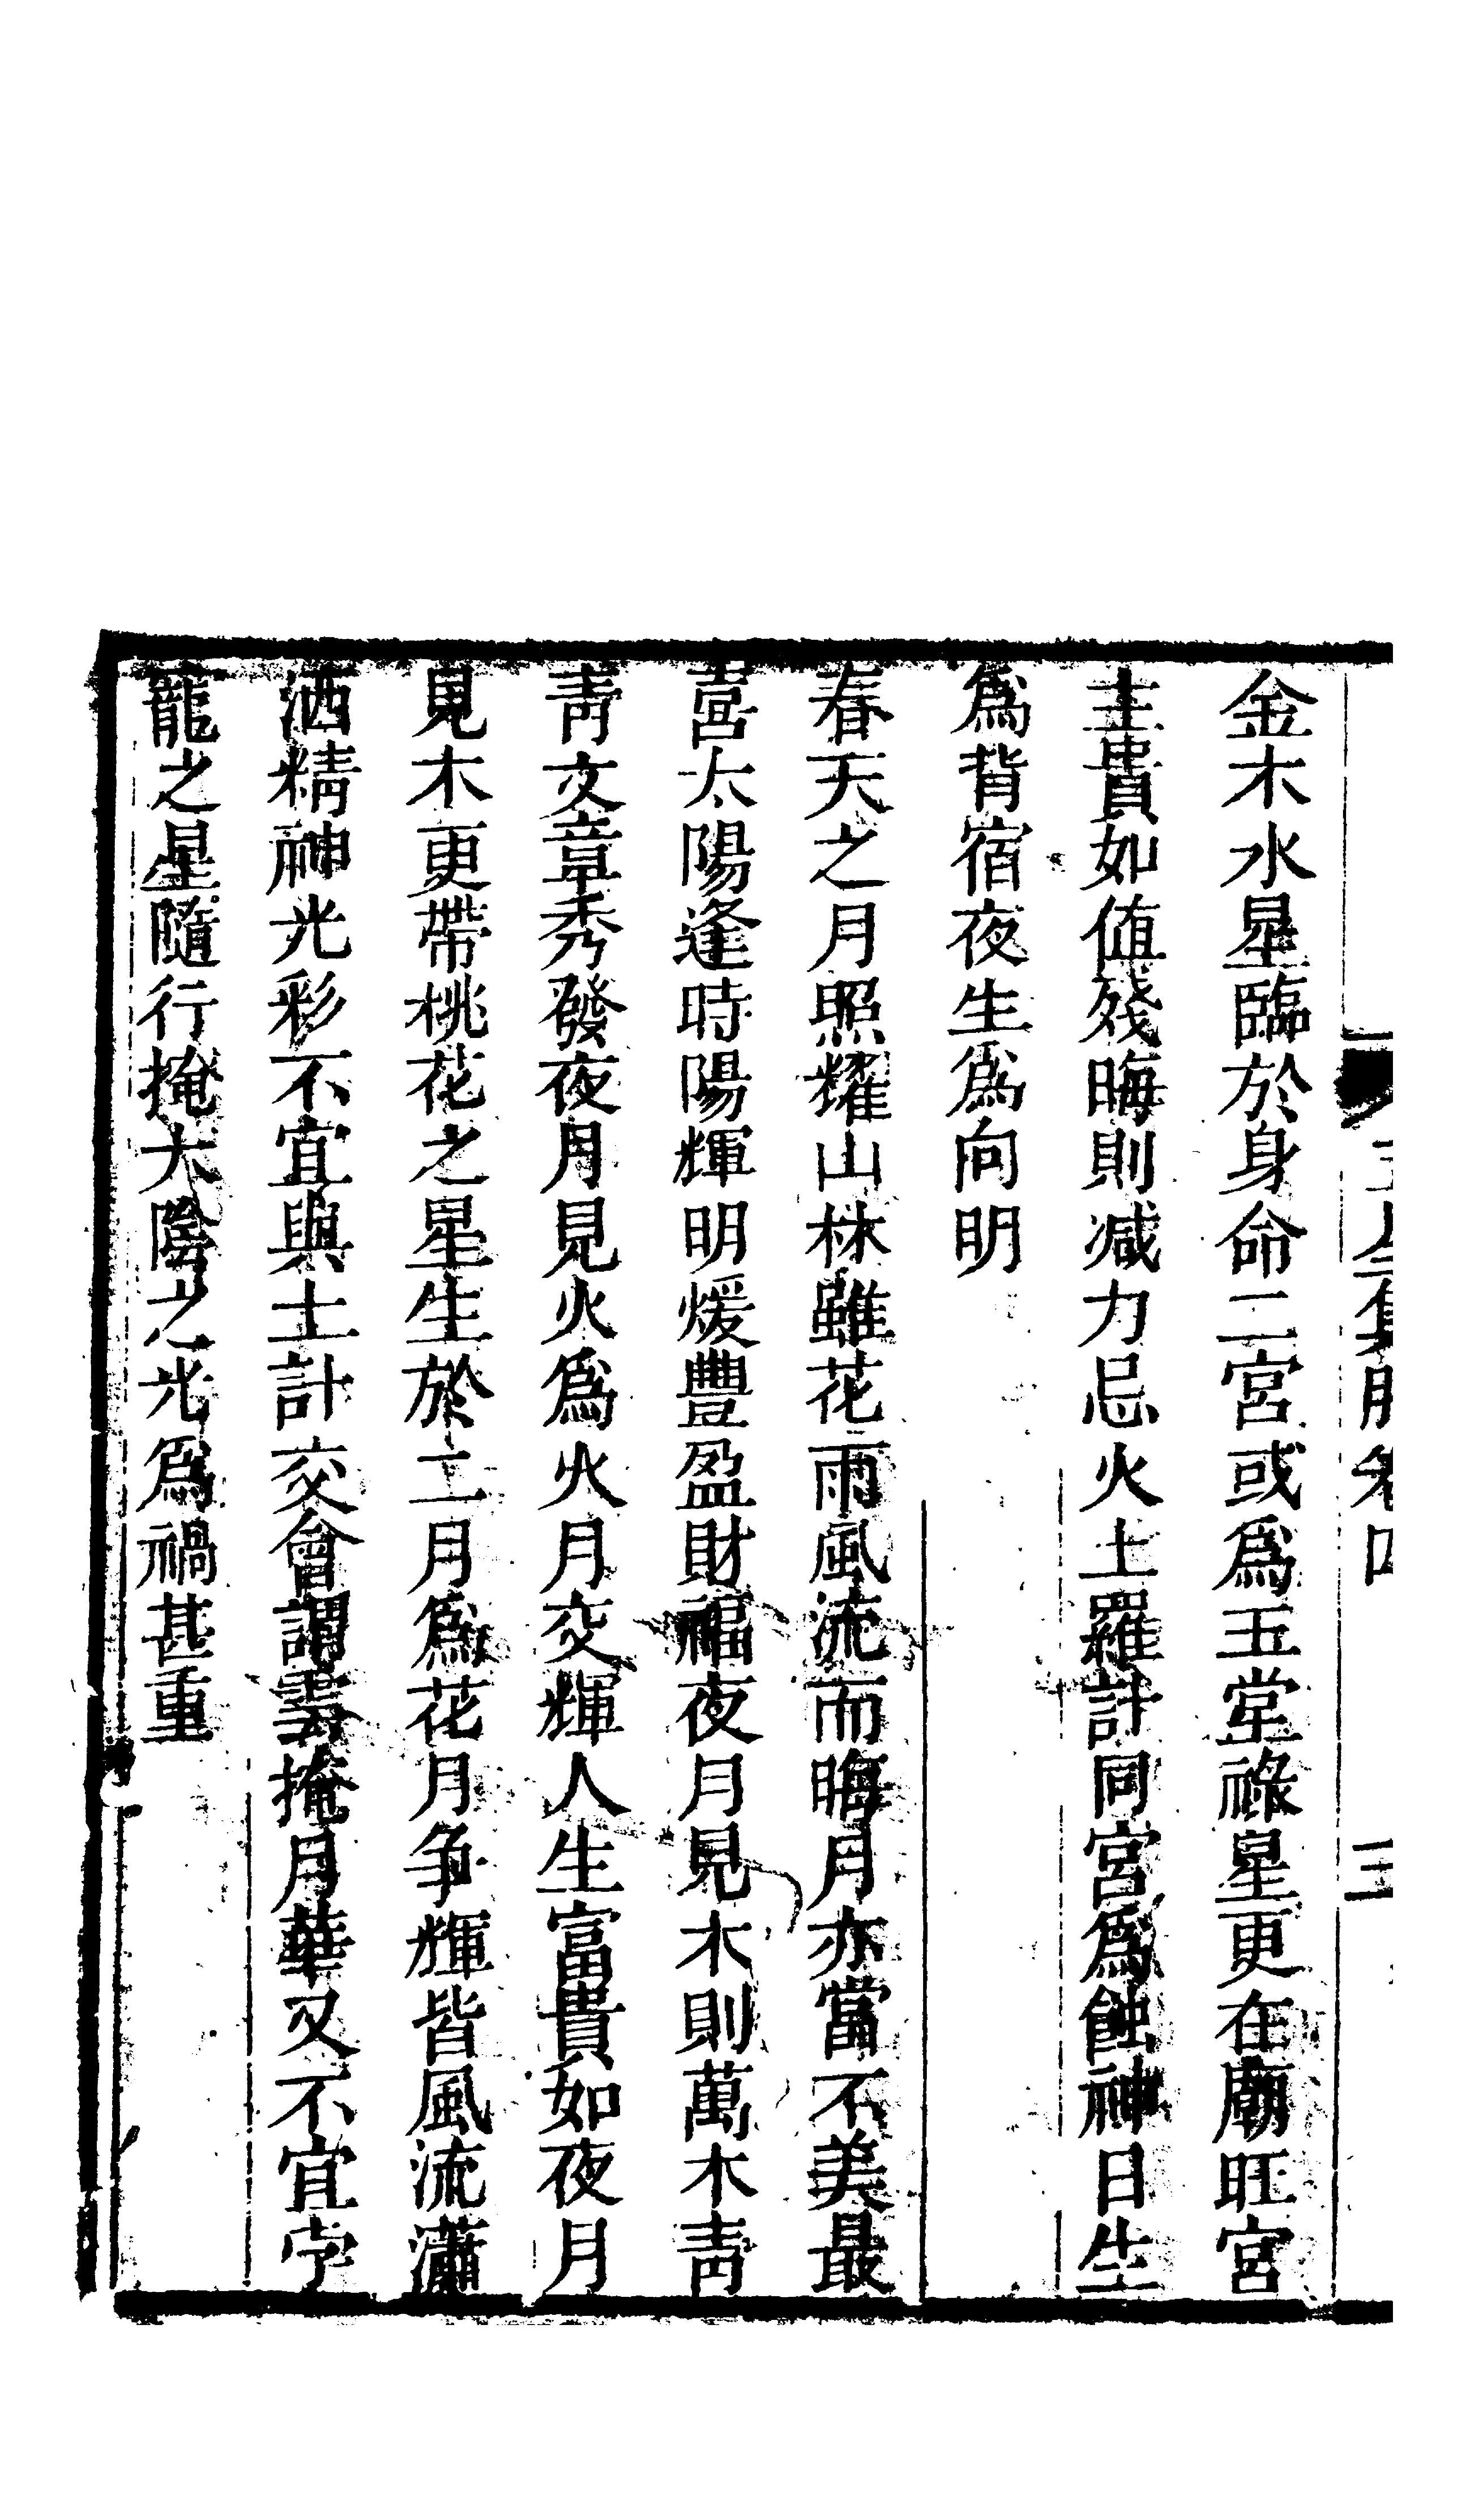 金木水星臨於身命二宮或爲玉堂祿星更在廟旺宮
主貴如值殘晦則减力忌火土羅計同宮爲蝕神日生
爲背宿夜生爲向明
春天之月照耀山林雖花雨風流而晦月亦當不美最
喜太陽逢時陽輝明煖豐盈財福夜月見木則萬木青
青文章秀發夜月見火爲火月交輝人生富貴如夜月
見木更帶桃花之星生於二月爲花月争輝皆風流瀟
洒精神光彩不宜與土計交會謂雲掩月華又不宜孛
龍之星隨行掩太陰之光爲禍甚重